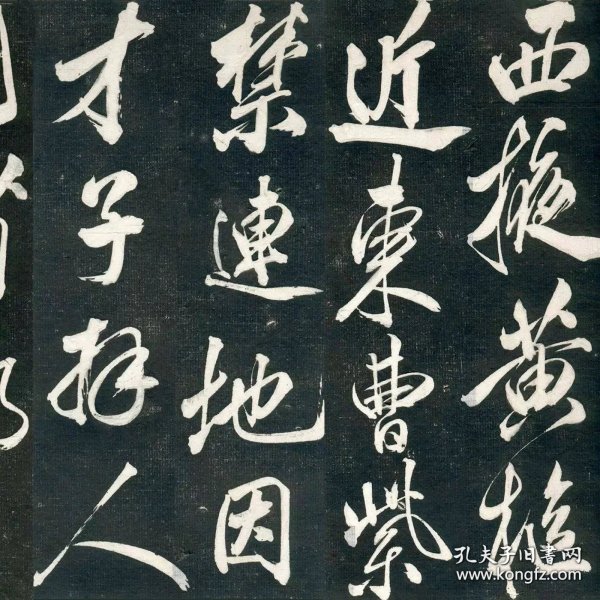 西掖黄樞
近東曹紫
禁連地因
才子拜人
孔夫子旧書网
www.kongfz.com